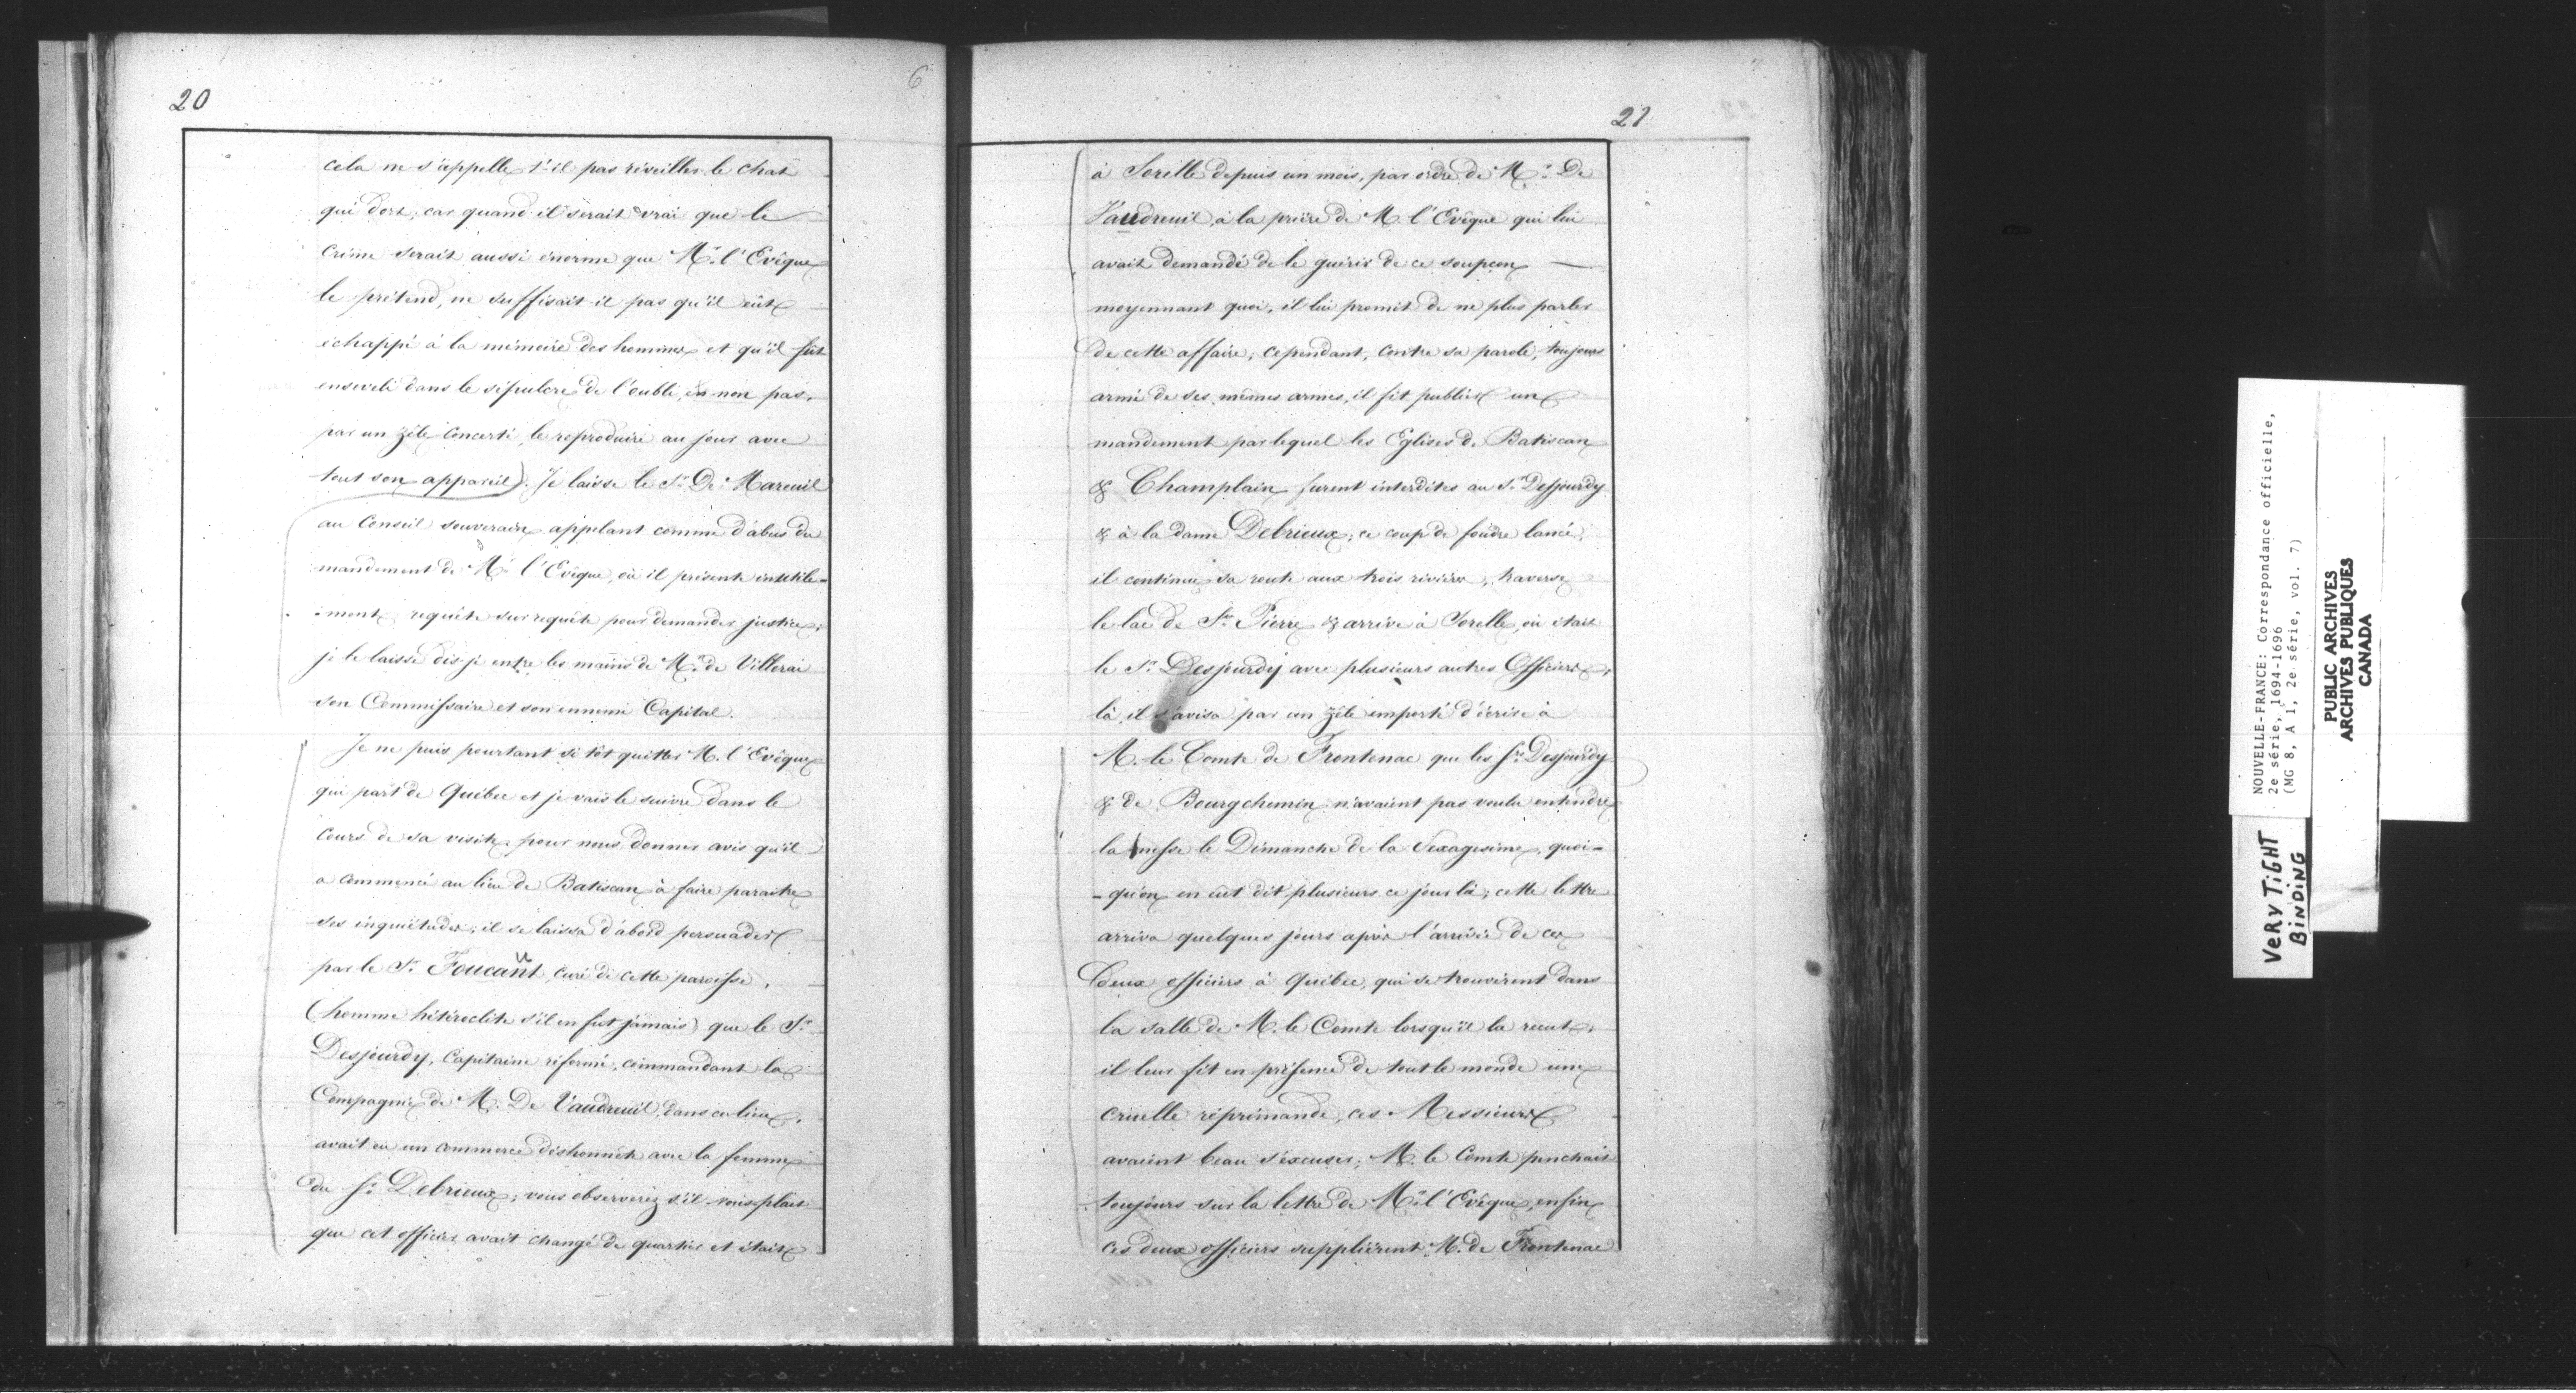 20
6
cela ne s'appelle t-il pas réveiller le chat
qui dort, car quand il serait vrai que le
crime serait aussi énorme que Mr. l'Evêque
le prétend, ne suffisait-il pas qu'il eût
échappé à la mémoire des hommes et qu'il fût
enseveli dans le sépulcre de l'oubli, et non pas,
par un zèle concerté, le reproduire au jour avec
tout son appareil). Je laisse le Sr. De Mareuil
au Conseil souverain appelant comme d'abus du
mandement de Mr. l'Evêque, où il présente inutile-
-ment requête sur requête pour demander justice;
je le laisse dis-je entre les mains de Mr. de Villerai
son Commissaire et son ennemi Capital.
Je ne puis pourtant si tôt quitter M. l'Evêque
qui part de Québec et je vais le suivre dans le
cours de sa visite, pour nous donner avis qu'il
a commencé au lieu de Batiscan à faire paraître
ses inquiétudes; il se laissa d'abord persuader
par le Sr. Foucault, curé de cette paroisse,
(homme hétéroclite s'il en fut jamais) que le Sr.
Desjourdy, Capitaine réformé, commandant la
Compagnie de M. De Vaudreuil, dans ce lieu,
avait eu un commerce déshonnête avec la femme
du Sr. Debrieux; vous observerez s'il vous plait
que cet officier avait changé de quartier et était
21
à Sorelle depuis un mois, par ordre de Mr. De
Vaudreuil, à la prière de M. l'Evêque qui lui
avait demandé de le guérir de ce soupçon
moyennant quoi, il lui promit de ne plus parler
de cette affaire; cependant, contre sa parole, toujours
armé de ses mêmes armes, il fit publier un
mandement par lequel les Eglises de Batiscan
& Champlain furent interdites au Sr. Desjourdy
& à la dame Debrieux; ce coup de foudre lancé,
il continue sa route aux trois rivières, traverse
le lac de St. Pierre & arrive à Sorelle, où était
le Sr. Desjourdy avec plusieurs autres Officiers;
là, il s'avisa par un zèle emporté d'écrire à
M. le Comte de Frontenac que les Srs. Desjourdy
& de Bourgchemin n'avaient pas voulu entendre
la messe le Dimanche de la Sexagesime, quoi-
-qu'on en eût dit plusieurs ce jour là; cette lettre
arriva quelques jours après l'arrivée de ces
deux officiers à Québec, qui se trouvèrent dans
la salle de M. le Comte lorsqu'il la reçut;
il leur fit en présence de tout le monde une
cruelle réprimande, ces Messieurs
avaient beau s'excuser; M. le Comte penchait
toujours sur la lettre de Mr. l'Evêque, enfin
ces deux officiers supplièrent M. de Frontenac
NOUVELLE-FRANCE: Correspondance officielle,
2e série, 1694-1696
(MG 8, A 1, 2e série, vol. 7)
PUBLIC ARCHIVES
ARCHIVES PUBLIQUES
CANADA
VERY TIGHT
BINDING